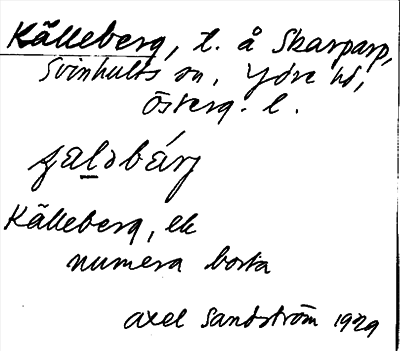 Källeberg, t. å Skarparp,
Svinhults sn, Ydre hd,
Österg. l.
Källeberg, ek
numera borta
Axel Sandström 1929